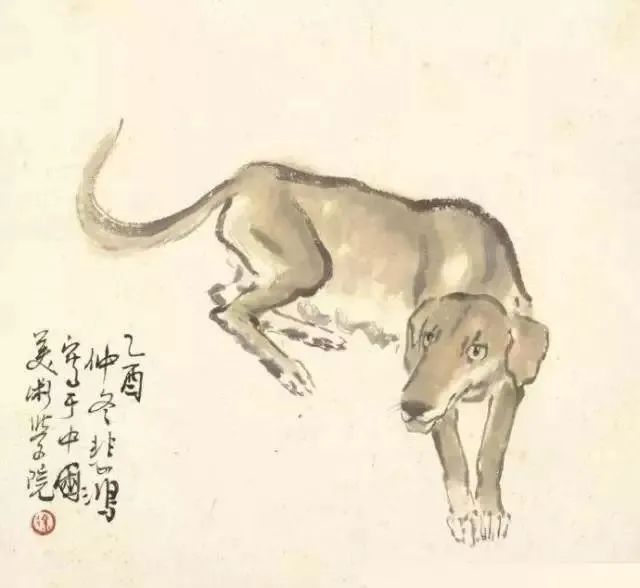 乙酉
仲冬悲鸿
写于中國
美术学院
徐